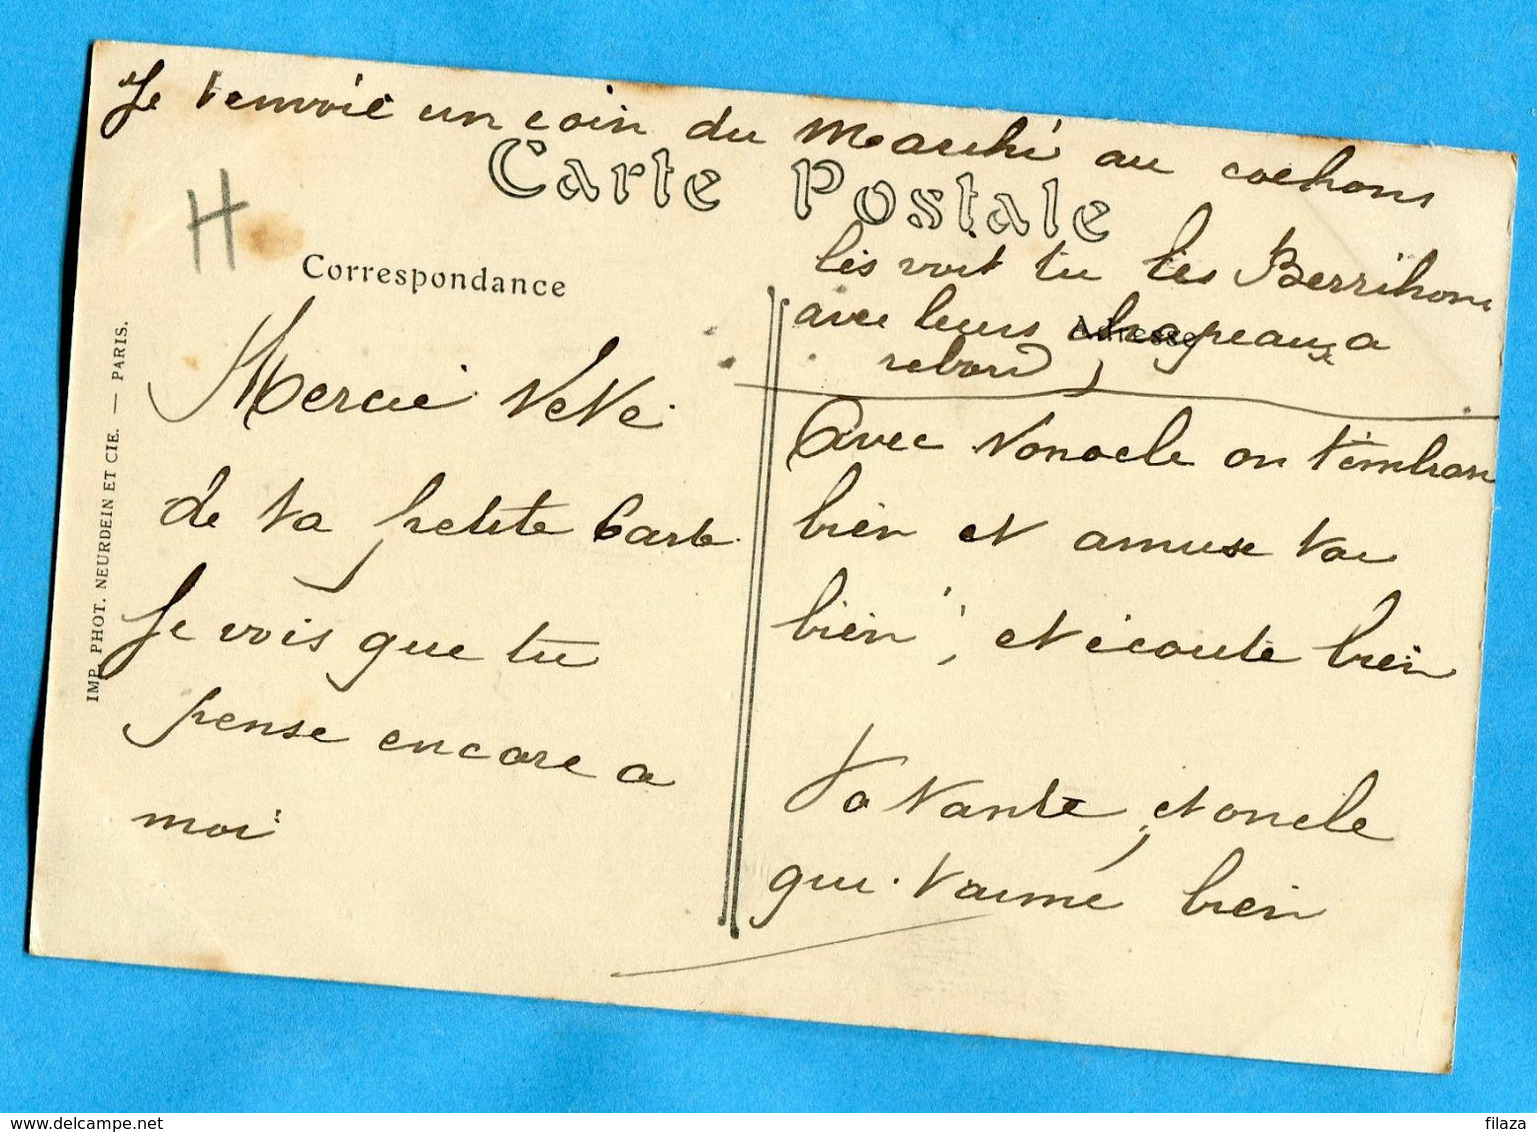 Je t'envoie un coin du Marché au cochons
Carte Postale
H
Correspondance
lés voit tu les Berrichons
avec leurs chapeaux a
Adresse
rebord
Merci Neve
de ta petite Carte
Je vois que tu
pense encore a
moi
Avec Nonocle on t'embrasse
bien et amuse toi
bien, et écoute bien
Ta Tante, et oncle
qui t'aime bien
IMP. PHOT. NEURDEIN ET CIE. — PARIS.
www.delcampe.net
filaza